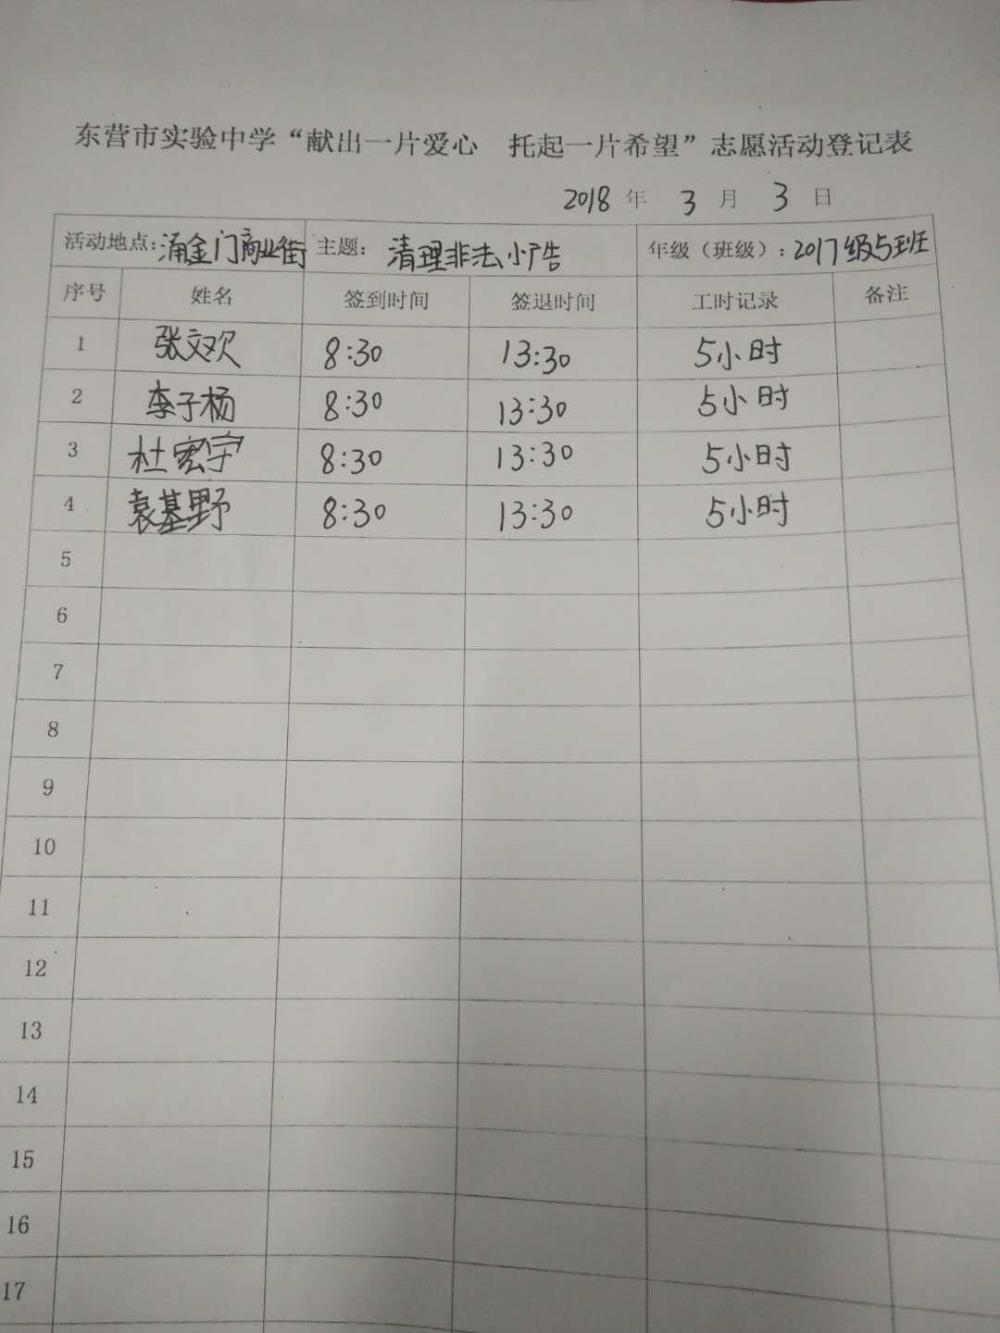 东营市实验中学“献出一片爱心 托起一片希望”志愿活动登记表
2018 年 3 月 3 日
活动地点:涌金门商业街 主题: 清理非法小广告 年级（班级）: 2017级5班
序号 姓名 签到时间 签退时间 工时记录 备注
1 张文欢 8:30 13:30 5小时
2 李子杨 8:30 13:30 5小时
3 杜宏宇 8:30 13:30 5小时
4 袁基野 8:30 13:30 5小时
5
6
7
8
9
10
11
12
13
14
15
16
17